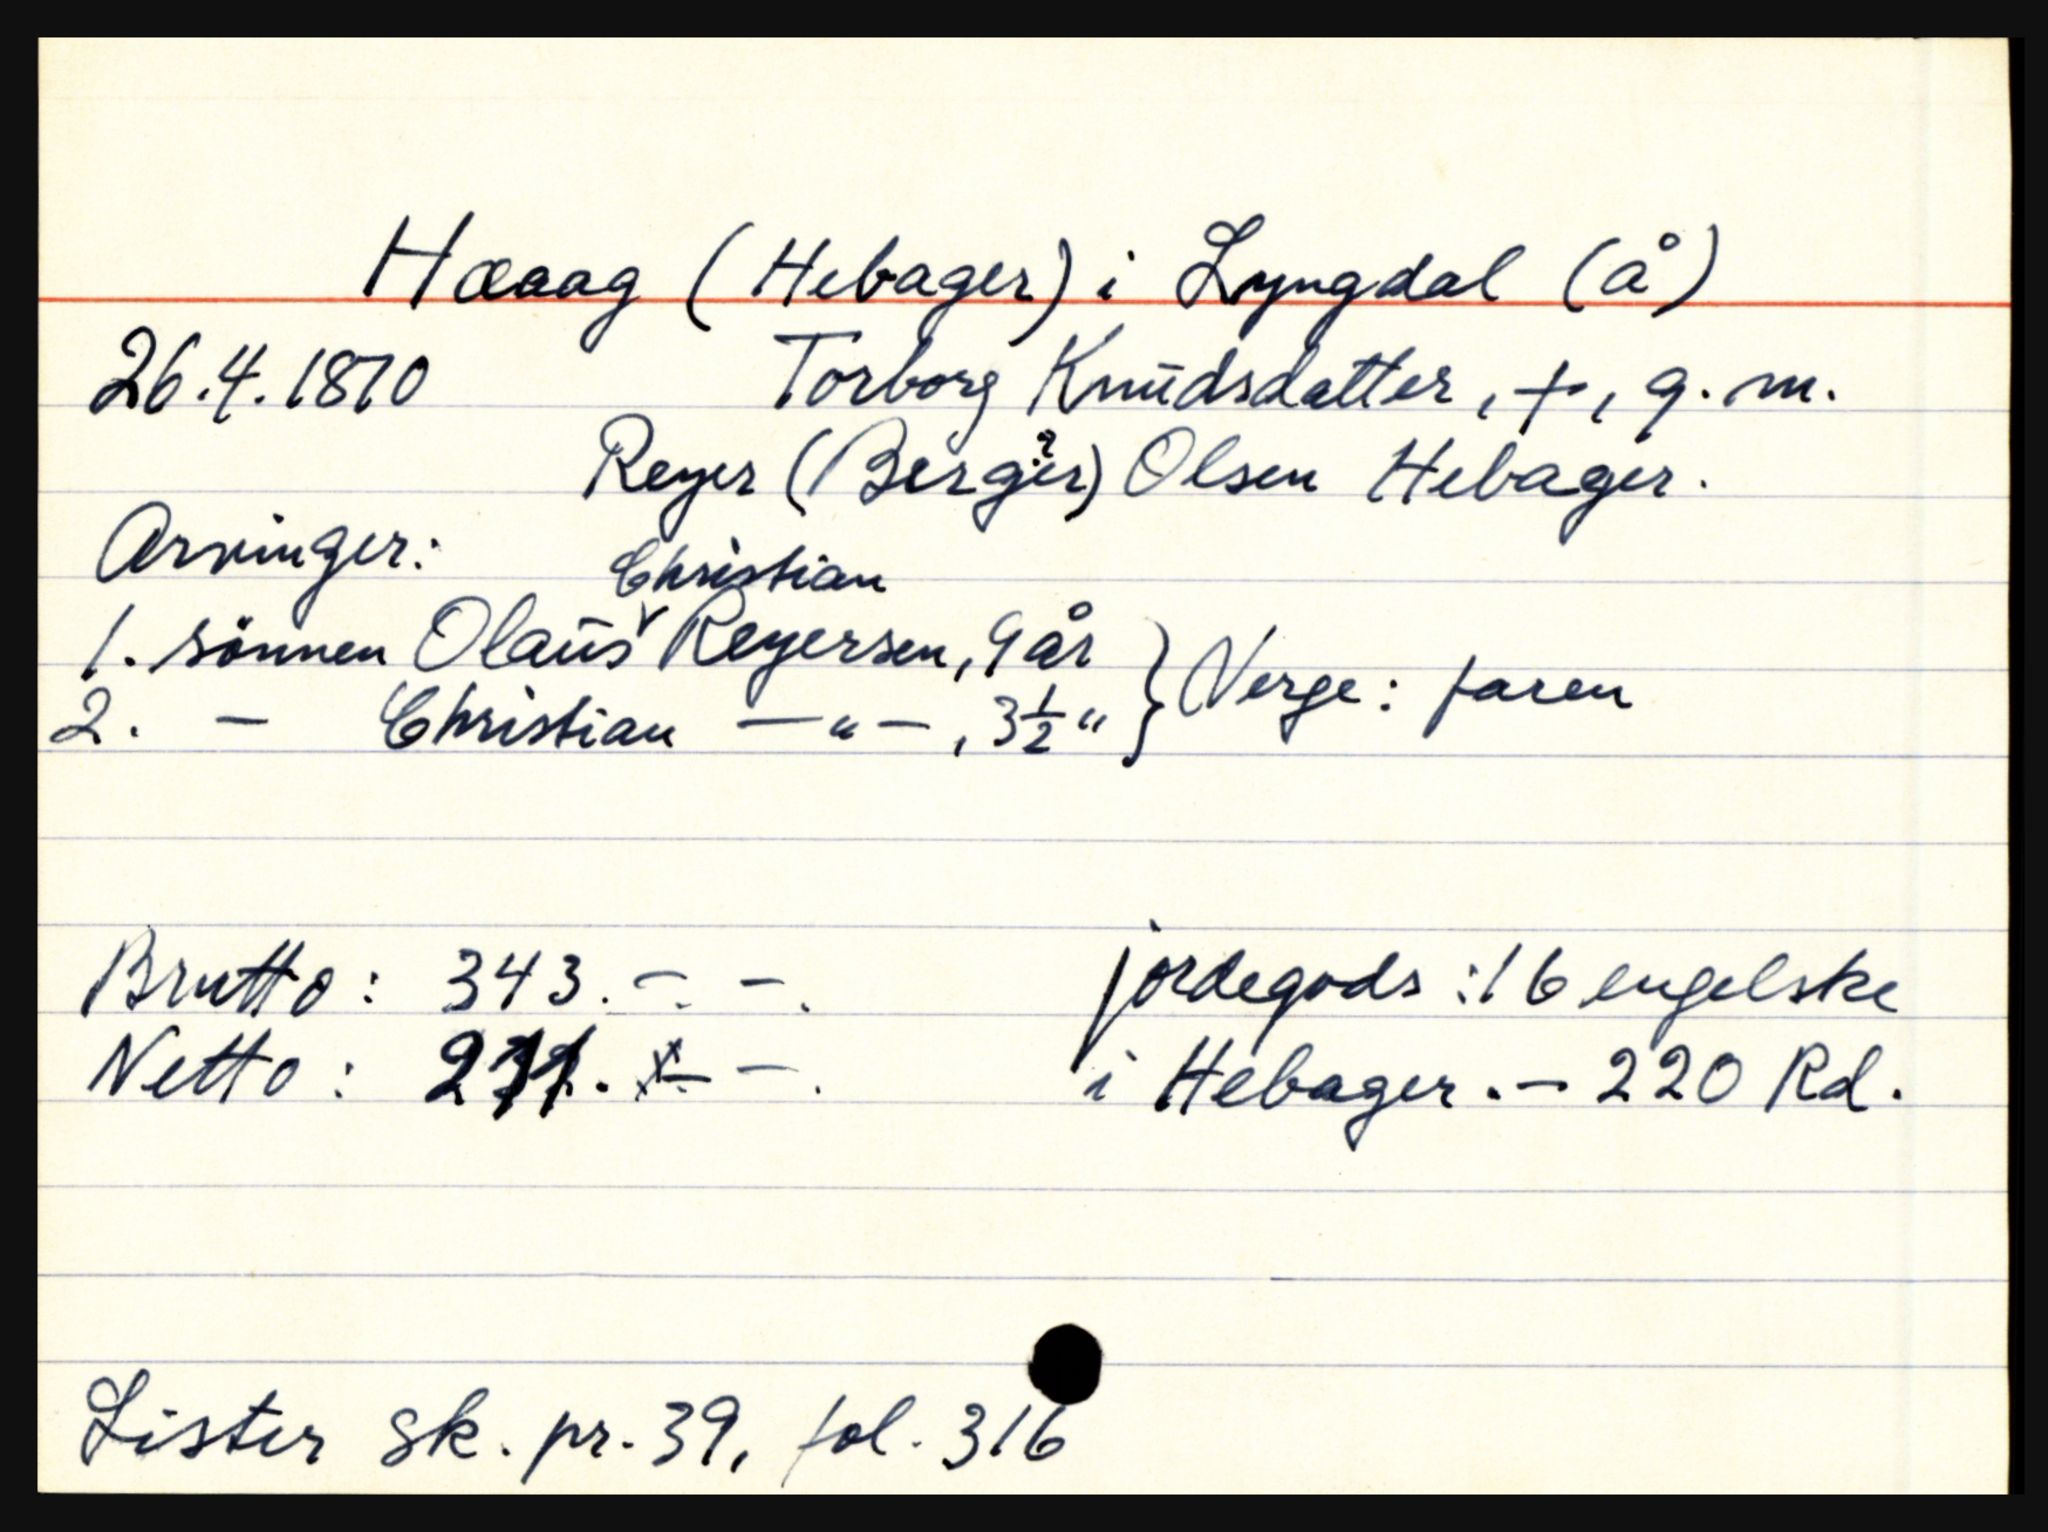 Hæaag (Hebager) i Lyngdal (å)
26.4.1870 Torborg Knudsdatter, +, g. m.
Reyer (Berger?) Olsen Hebager.
Arvinger:
Christian
1. sønnen Olaus Reyersen, 9 år
2. — Christian — " —, 3 1/2 " } Verge: faren
Brutto: 343. -. -. jordegods: 16 engelske
Netto: -. -. i Hebager. - 220 Rd.
Lister sk. pr. 39, fol. 316